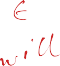 E
will